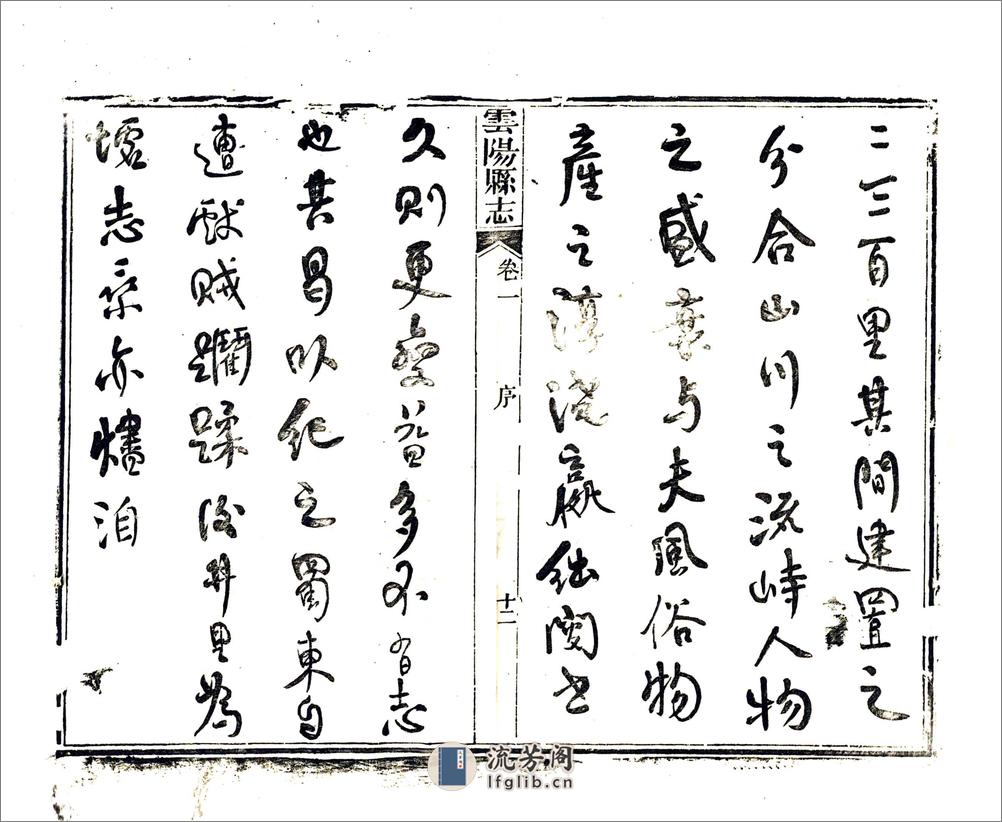 二三百里其間建置之
分合山川之流峙人物
之盛衰与夫風俗物
產之淳澆贏絀閱世
雲陽縣志 卷一 序 十二
久則更變益多不有志
也其曷以紀之蜀東自
遭獻賊躪蹂後井里為
墟志乘亦燼洎
流芳阁
lfglib.cn